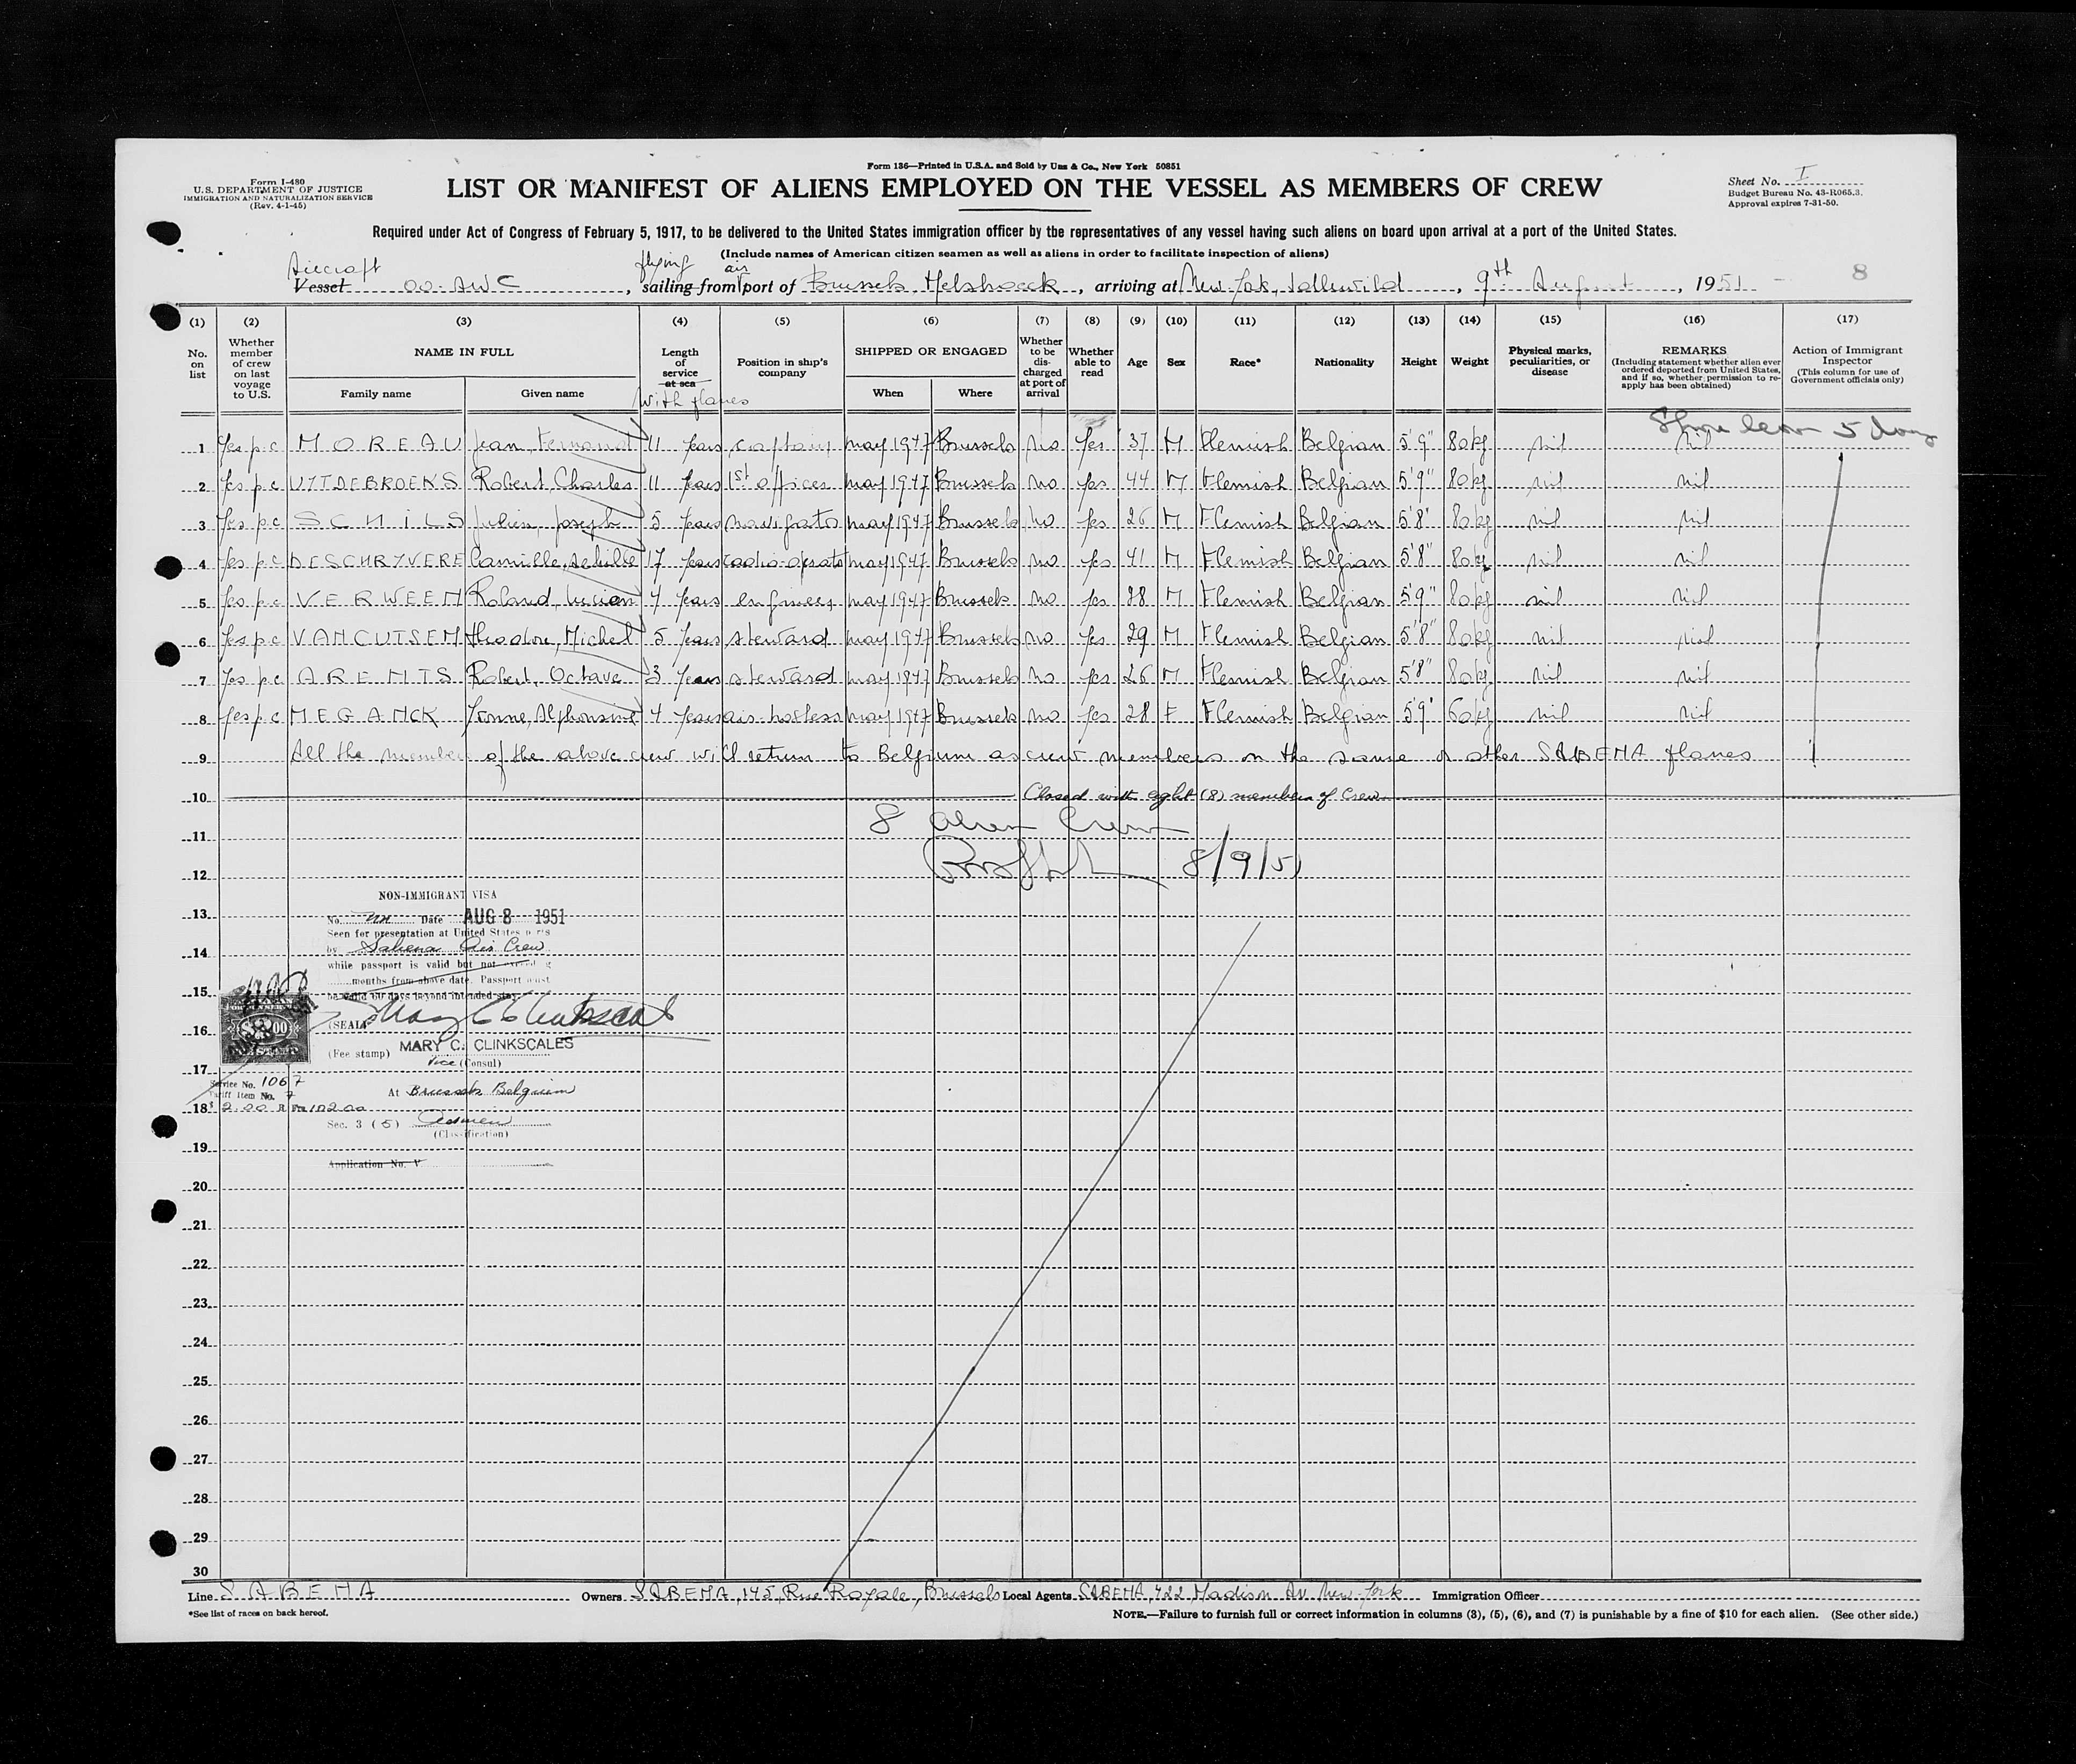 Form I-480
U.S. DEPARTMENT OF JUSTICE
IMMIGRATION AND NATURALIZATION SERVICE
(Rev. 4-1-45)
Form 136—Printed in U.S.A. and Sold by Unz & Co., New York 50851
LIST OR MANIFEST OF ALIENS EMPLOYED ON THE VESSEL AS MEMBERS OF CREW
Sheet No. I
Budget Bureau No. 43-R065.3.
Approval expires 7-31-50.
Required under Act of Congress of February 5, 1917, to be delivered to the United States immigration officer by the representatives of any vessel having such aliens on board upon arrival at a port of the United States.
(Include names of American citizen seamen as well as aliens in order to facilitate inspection of aliens)
Aircraft flying air
Vessel OO-AWC, sailing from port of Brussels Melsbroeck, arriving at New-York, Idlewild, 9th August, 1951 8
(1) (2) (3) (4) (5) (6) (7) (8) (9) (10) (11) (12) (13) (14) (15) (16) (17)
No. on list
Whether member of crew on last voyage to U.S.
NAME IN FULL
Family name
Given name
Length of service at sea
with planes
Position in ship's company
SHIPPED OR ENGAGED
When
Where
Whether to be discharged at port of arrival
Whether able to read
Age
Sex
Race*
Nationality
Height
Weight
Physical marks, peculiarities, or disease
REMARKS
(Including statement whether alien ever ordered deported from United States, and if so, whether permission to reapply has been obtained)
Action of Immigrant Inspector
(This column for use of Government officials only)
Shore leave 5 days
1 Yes p.c MOREAU Jean, Fernand 11 years captain may 1947 Brussels no yes 37 M Flemish Belgian 5'9" 80kg nil nil
2 Yes p.c UYTDEBROEKS Robert, Charles 11 years 1st officer may 1947 Brussels no yes 44 M Flemish Belgian 5'9" 80kg nil nil
3 Yes p.c SCHILS Julien, Joseph 5 years navigator may 1947 Brussels no yes 26 M Flemish Belgian 5'8" 80kg nil nil
4 Yes p.c DESCHRYVERE Camille, Achille 17 years radio-operator may 1947 Brussels no yes 41 M Flemish Belgian 5'8" 80kg nil nil
5 Yes p.c VERWEEN Roland, Lucien 4 years engineer may 1947 Brussels no yes 28 M Flemish Belgian 5'9" 80kg nil nil
6 Yes p.c VANCUTSEM Theodore, Michel 5 years steward may 1947 Brussels no yes 29 M Flemish Belgian 5'8" 80kg nil nil
7 Yes p.c ARENTS Robert, Octave 3 years steward may 1947 Brussels no yes 26 M Flemish Belgian 5'8" 80kg nil nil
8 Yes p.c MEGANCK Yvonne, Alphonsine 4 years air-hostess may 1947 Brussels no yes 28 F Flemish Belgian 5'9" 60kg nil nil
9 All the members of the above crew will return to Belgium as crew members on the same or other SABENA planes
10 Closed with eight (8) members of Crew
11 8 alien crew
12 8/9/51
NON-IMMIGRANT VISA
13 No. Date AUG 8 1951
Seen for presentation at United States ports
14 by Sabena Air Crew
while passport is valid but not exceeding
months from above date. Passport must
15 be valid 60 days beyond intended stay.
16 (SEAL) Mary C Clinkscales
(Fee stamp) MARY C. CLINKSCALES
17 Vice (Consul)
Service No. 1067
Tariff Item No. 7
At Brussels Belgium
18 $2.00
Sec. 3 (5)
(Classification)
19
Application No. V
20
21
22
23
24
25
26
27
28
29
30
Line SABENA Owners SABENA, 145, Rue Royale, Brussels Local Agents SABENA, 422, Madison Av. New-York Immigration Officer
*See list of races on back hereof.
NOTE.—Failure to furnish full or correct information in columns (3), (5), (6), and (7) is punishable by a fine of $10 for each alien. (See other side.)